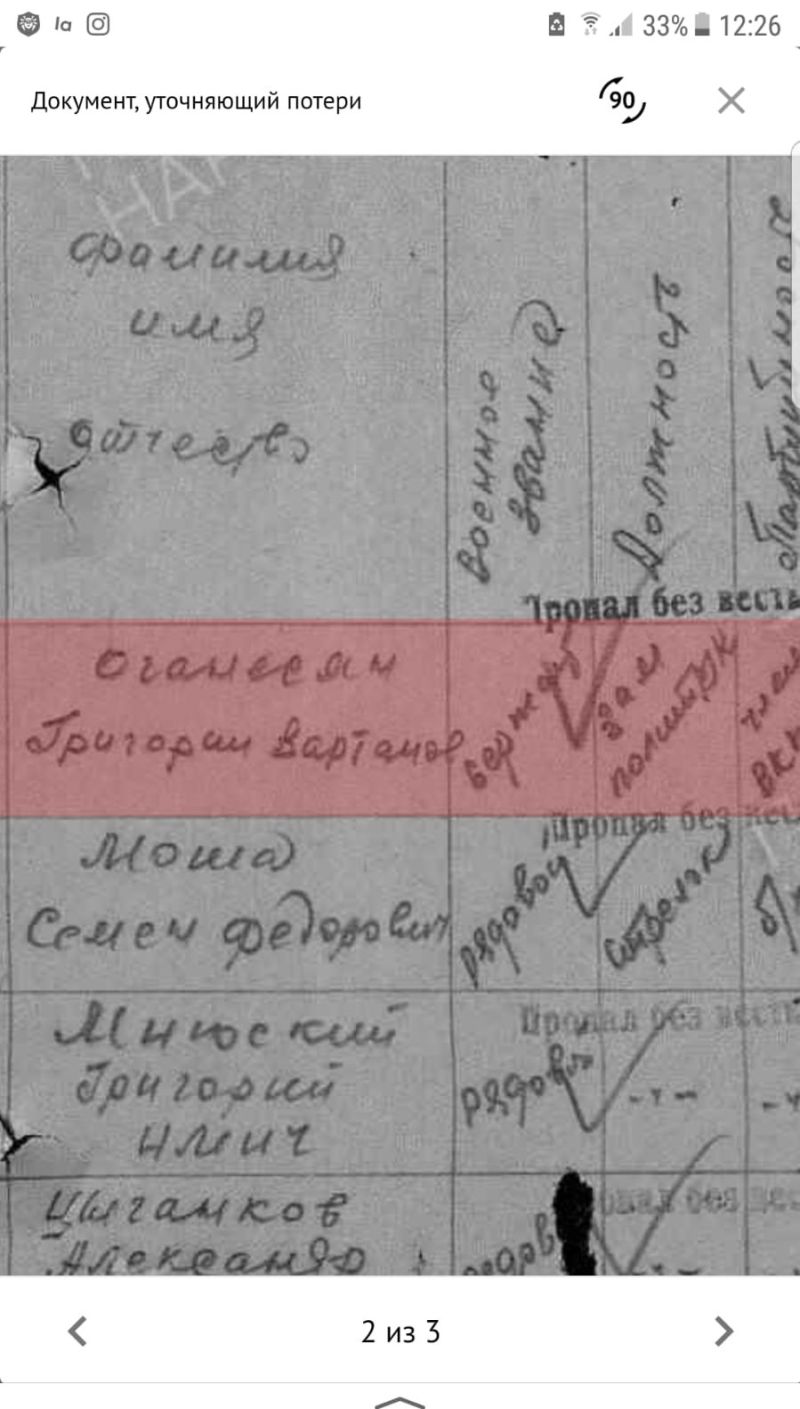 la 33% 12:26
Документ, уточняющий потери
90
НАР
Фамилия
имя
отчество
Военное
звание
Должность
Партийность
Пропал без весть
Оганесян
Григории Вартанов
сержант
зам
политрук
член
ВК
Пропал без вест
Моша
Семен Федорович
рядовой
стрелок
б/
Пропал без весть
Минюский
Григорий
Илич
рядовой
-"-
-"
опал без вес
Цыганков
Александр
рядов
-"-
2 из 3